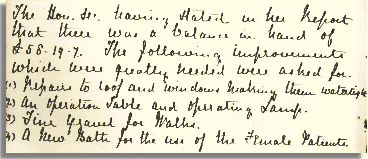 The Hon. Sec. having stated in her Report
that there was a balance in hand of
£58-19-7. The following improvements
which were greatly needed were asked for.
(1) Repairs to roof and windows making them watertight
(2) An Operation Table and Operating Lamp.
(3) Fine Gravel for Walks.
(4) A New Bath for the use of the Female Patients.